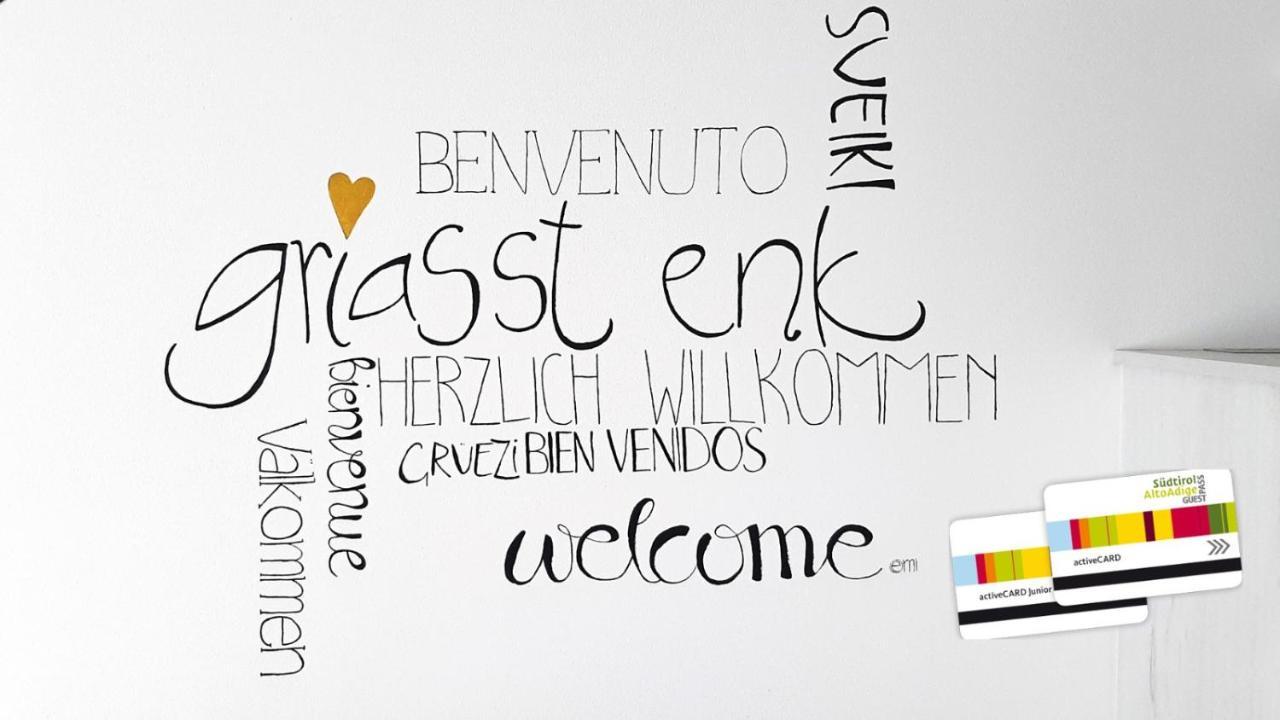 SVEIKI
BENVENUTO
griasst enk
HERZLICH WILLKOMMEN
bienvenue
Välkommen
GRÜEZi BIEN VENIDOS
welcome
emi
Südtirol
AltoAdige
GUESTPASS
activeCARD
activeCARD Junior